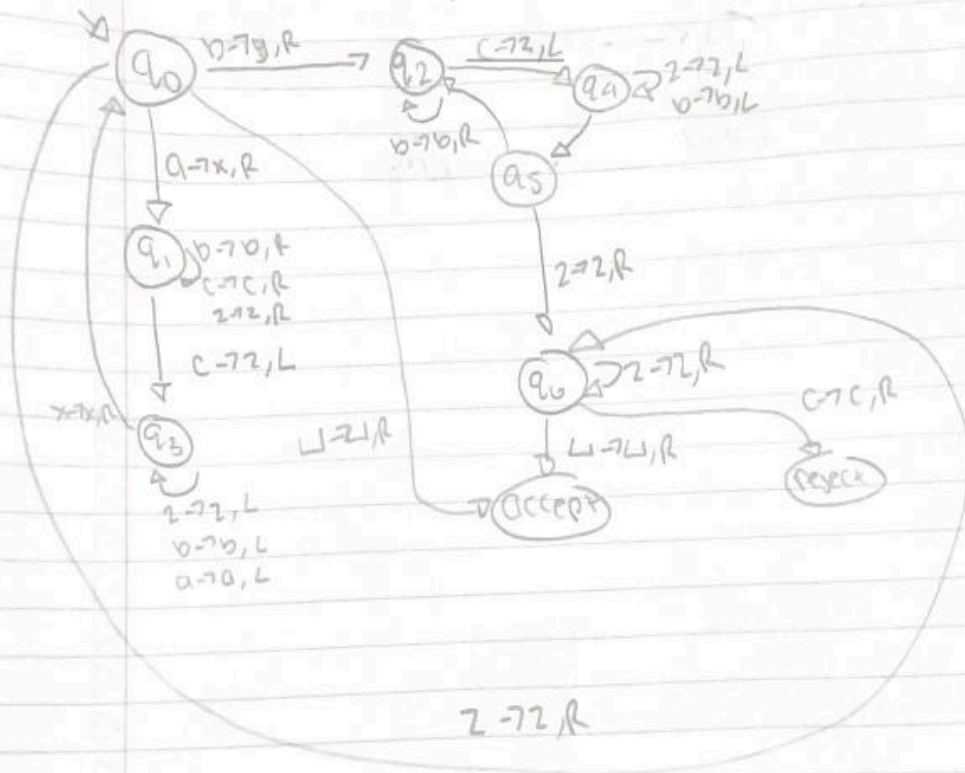 q0
b→y,R
q2
c→z,L
q4
z→z,L
b→b,L
b→b,R
q5
a→x,R
q1
b→b,R
c→c,R
z→z,R
z→z,R
c→z,L
q6
z→z,R
c→c,R
x→x,R
q3
⊔→⊔,R
⊔→⊔,R
accept
reject
z→z,L
b→b,L
a→a,L
z→z,R